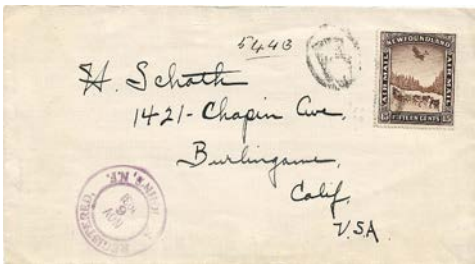 5443
NEWFOUNDLAND
AIR MAIL
AIR MAIL
15 FIFTEEN CENTS 15
H. Schoth
1421-Chapin Ave.
Burlingame,
Calif.
U.S.A.
REGISTERED,
JOHN'S, N.F.
NOV